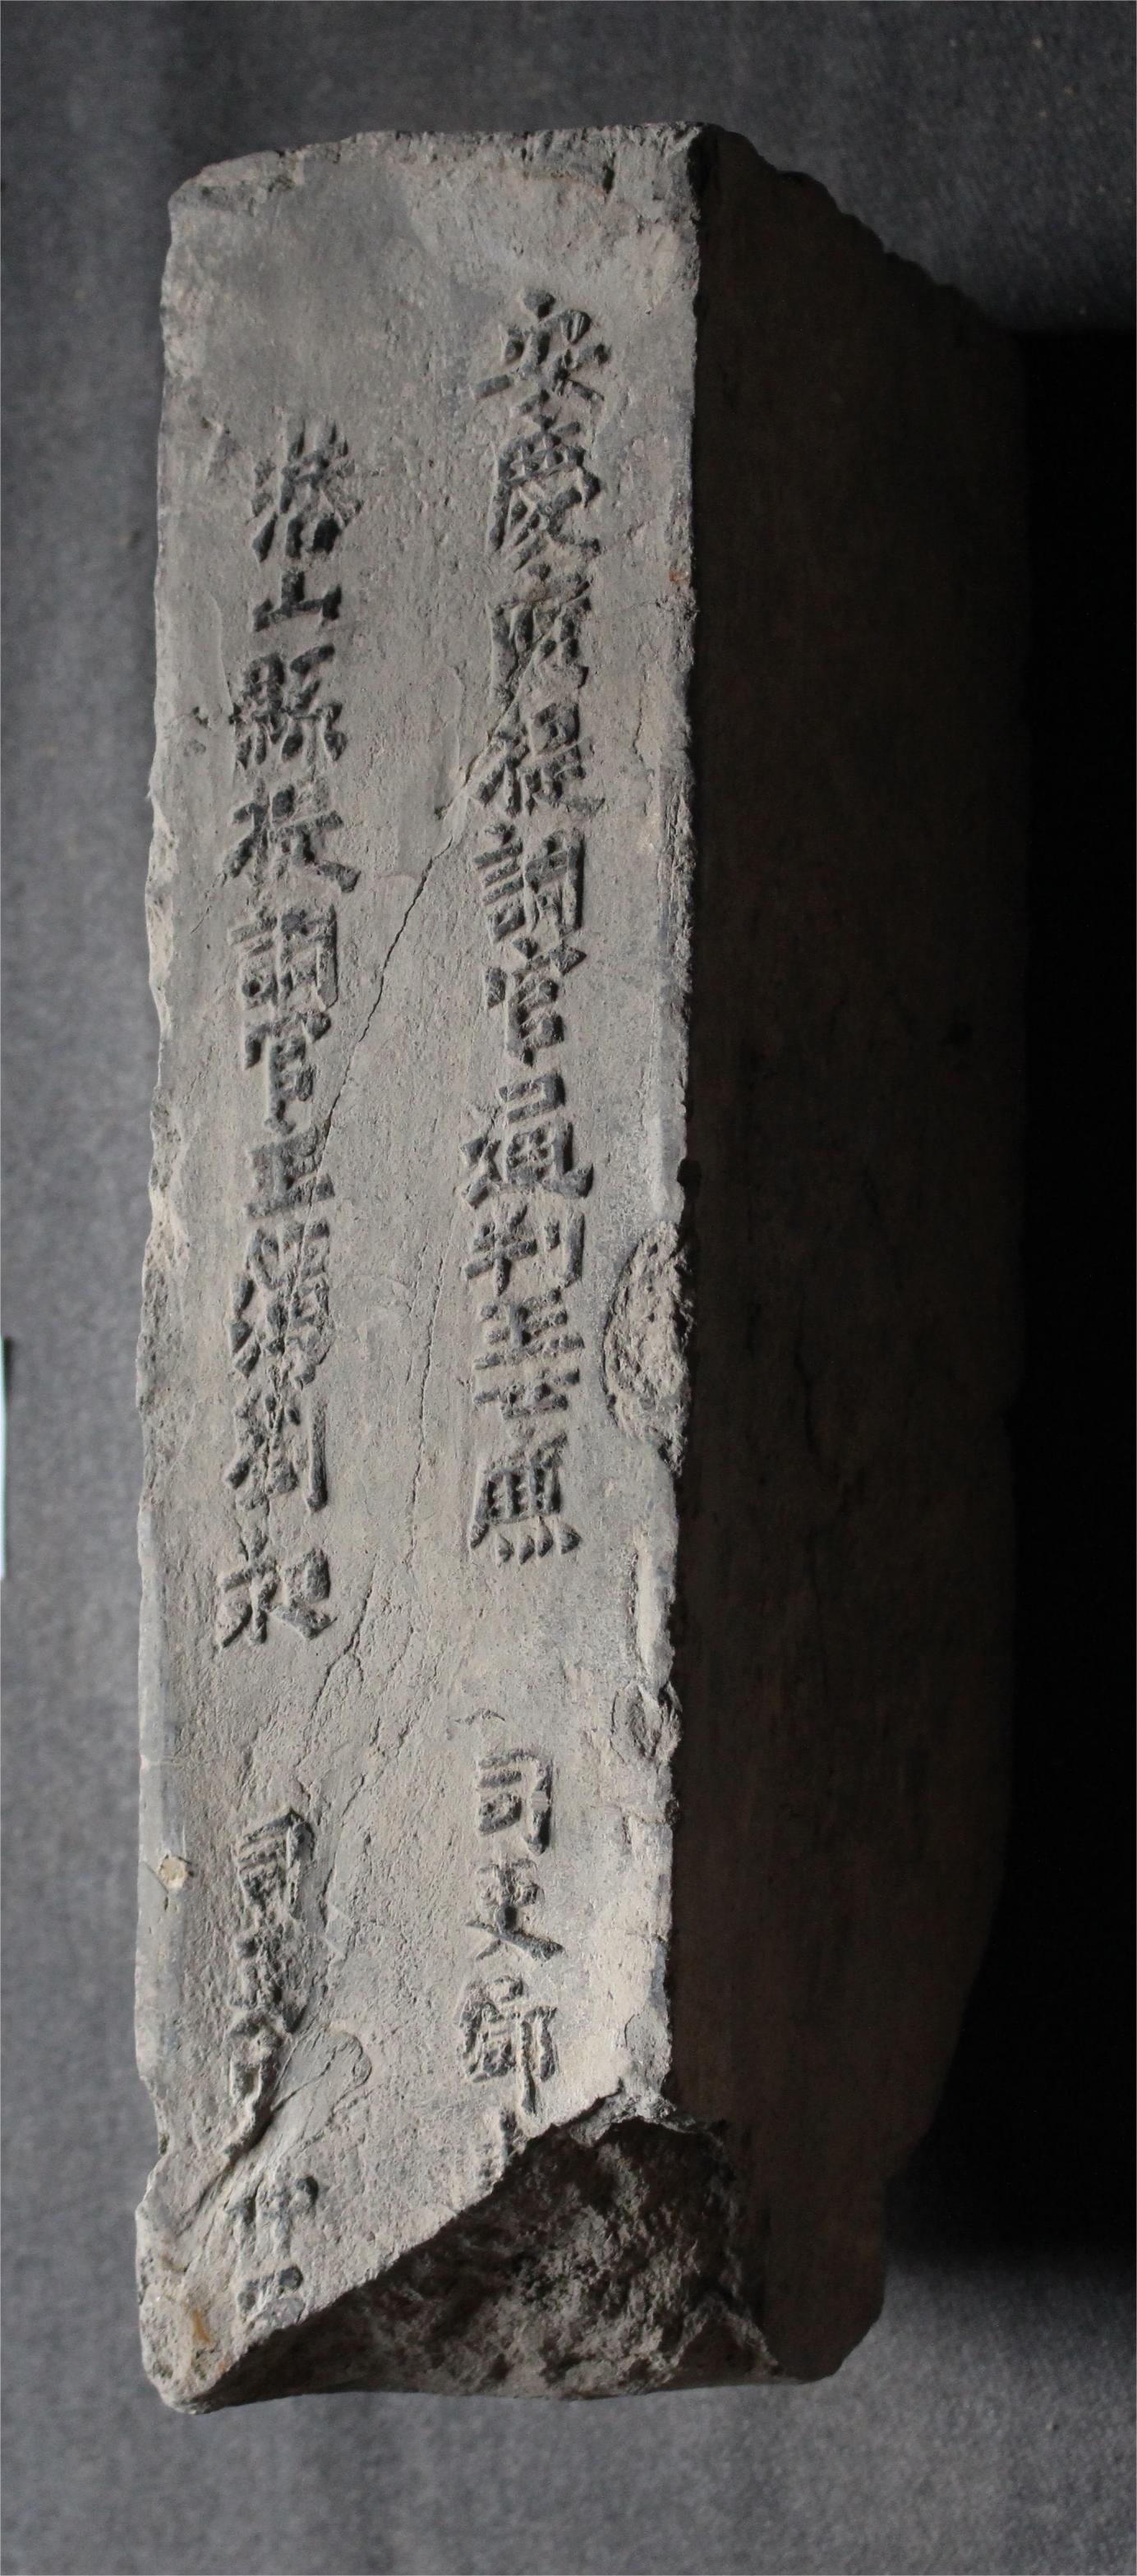 安慶府提調官通判王士廉 司吏
潛山縣提調官主簿劉 司吏 仲